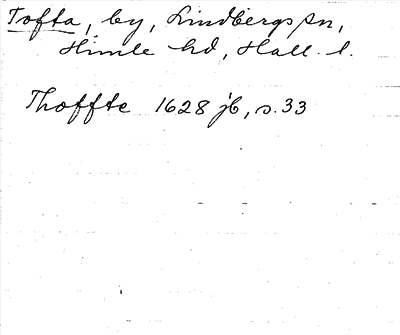 Tofta, by, Lindbergs sn,
Himle hd, Hall. l.
Thoffte 1628 jb, s. 33